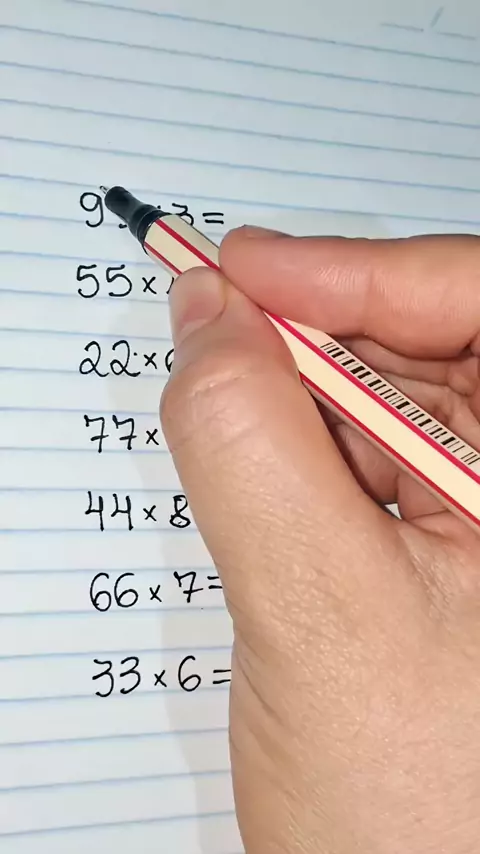 9 × 3 =
55 ×
22 ×
77 ×
44 × 8
66 × 7 =
33 × 6 =